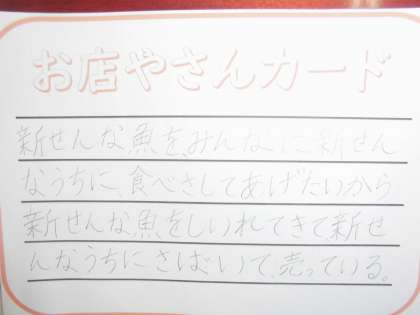 お店やさんカード
新せんな魚を、みんなに新せん
なうちに、食べさしてあげたいから
新せんな魚をしいれてきて新せ
んなうちにさばいて、売っている。